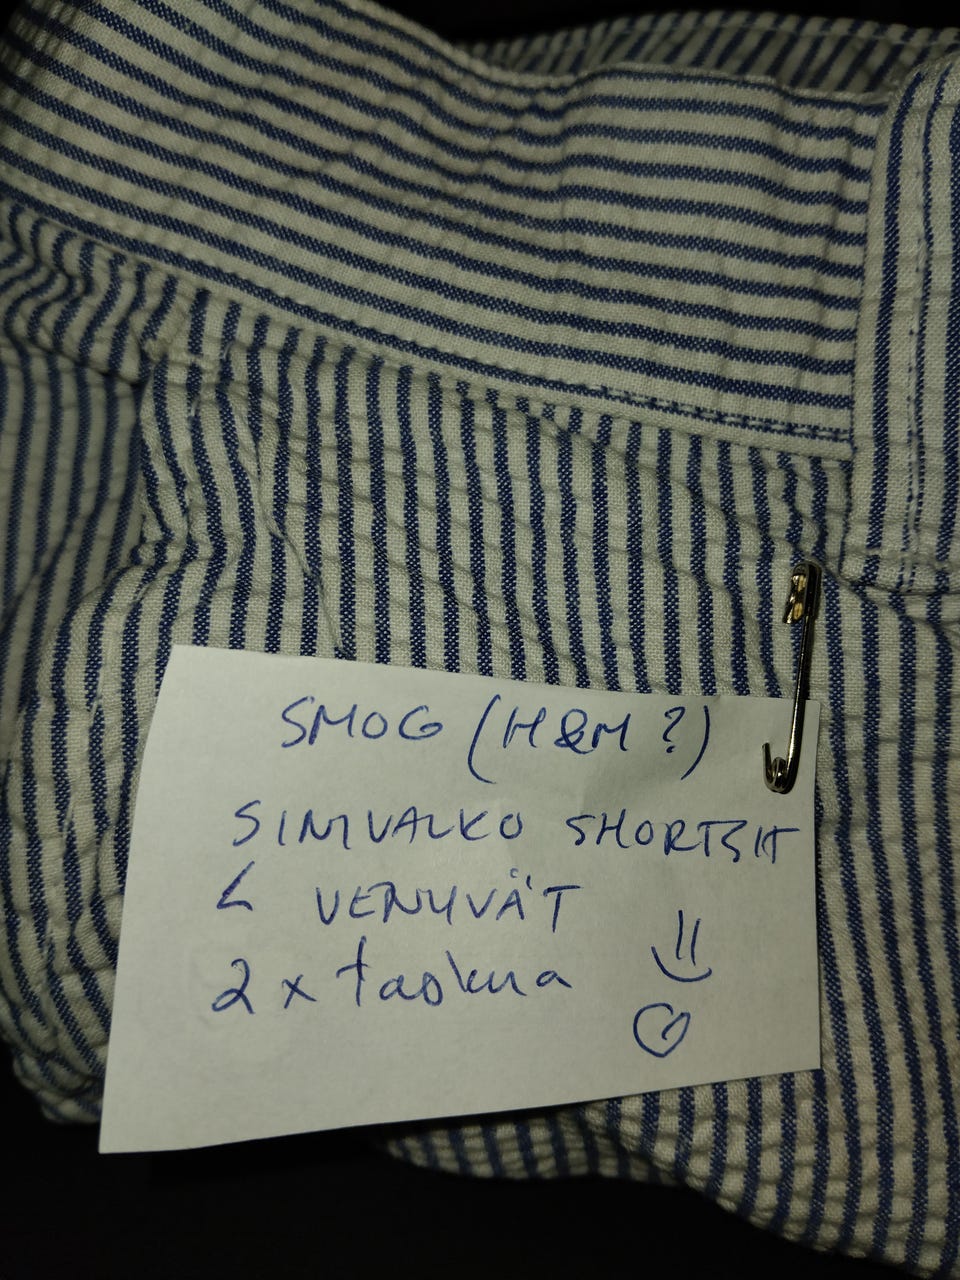 SMOG (H&M?)
SINIVALKO SHORTSIT
< VENYVÄT
2 x taskua